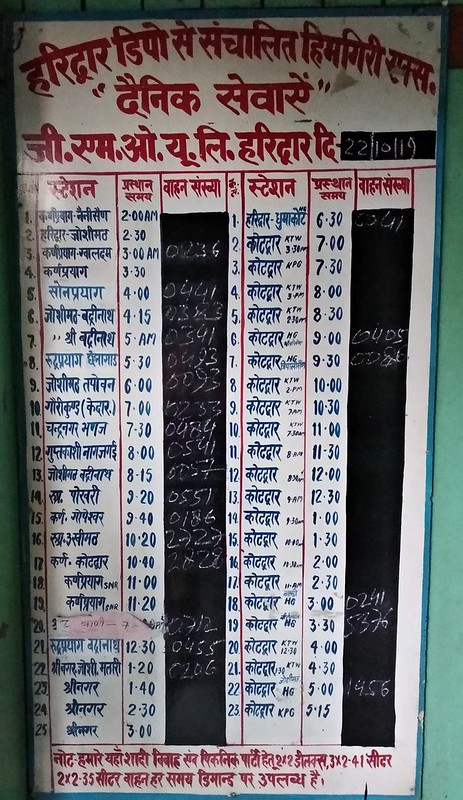 हरिद्वार डिपो से संचालित हिमगिरी एक्स.
"दैनिक सेवासें"
जी.एम.ओ.यू.लि. हरिद्वार दि 22/10/19
स्टेशन प्रस्थान समय वाहन संख्या
1. कर्णप्रयाग-नैनीसैण 2.00 AM
2. हरिद्वार-जोशीमठ 2.30
3. कर्णप्रयाग-ग्वालदम 3.00 AM 0236
4. कर्णप्रयाग 3.30
5. सोनप्रयाग 4.00 0441
6. जोशीमठ-बद्रीनाथ 4.15 0383
7. " श्री बद्रीनाथ 5 AM 0341
8. रुद्रप्रयाग 5.30 0493
9. जोशीमठ तपोवन 6.00 0093
10. गौरीकुण्ड (केदार.) 7.00 0233
11. चन्द्रनगर भणज 7.30 0484
12. गुप्तकाशी नागजगई 8.00 0541
13. जोशीमठ बद्रीनाथ 8.15
14. रुद्र. पोखरी 9.20 0551
15. कर्ण. गोपेश्वर 9.40 0186
16. रुद्र. उखीमठ 10.20 2727
17. कर्ण. कोटद्वार 10.40 2828
18. कर्णप्रयाग SNR 11.00
19. कर्णप्रयाग SNR 11.20
20. 2712
21. रुद्रप्रयाग बद्रीनाथ 12.30 0455
22. श्रीनगर, जोशी. मलारी 1.20 0206
23 श्रीनगर 1.40
24 श्रीनगर 2.30
25 श्रीनगर 3.00
क्र. स्टेशन प्रस्थान समय वाहन संख्या
1. हरिद्वार-धुमाकोट HG 6.30 0041
2. कोटद्वार KTW 7.00
3. कोटद्वार KPG 7.30
4. कोटद्वार KTW 8.00
5. कोटद्वार KTW 8.30
6. कोटद्वार HG 9.00 0405
7. कोटद्वार HG 9.30
8. कोटद्वार KTW 2 PM 10.00
9. कोटद्वार KTW 7 AM 10.30
10. कोटद्वार KTW 7.30 AM 11.00
11. कोटद्वार 8 AM 11.30
12 कोटद्वार 12.00
13. कोटद्वार 9 AM 12.30
14 कोटद्वार 1.00
15 कोटद्वार 1.30
16 कोटद्वार 2.00
17 कोटद्वार 11 AM 2.30
18 कोटद्वार HG 3.00 0241
19 कोटद्वार HG 3.30 5376
20 कोटद्वार KTW 12.30 4.00
21. कोटद्वार KTW 4.30
22 कोटद्वार HG 5.00 1456
23. कोटद्वार KPG 5.15
नोट:- हमारे यहाँ शादी विवाह एवं पिकनिक पार्टी हेतु 2x2 डीलक्स, 3x2-41 सीटर
2x2-35 सीटर वाहन हर समय डिमान्ड पर उपलब्ध है।